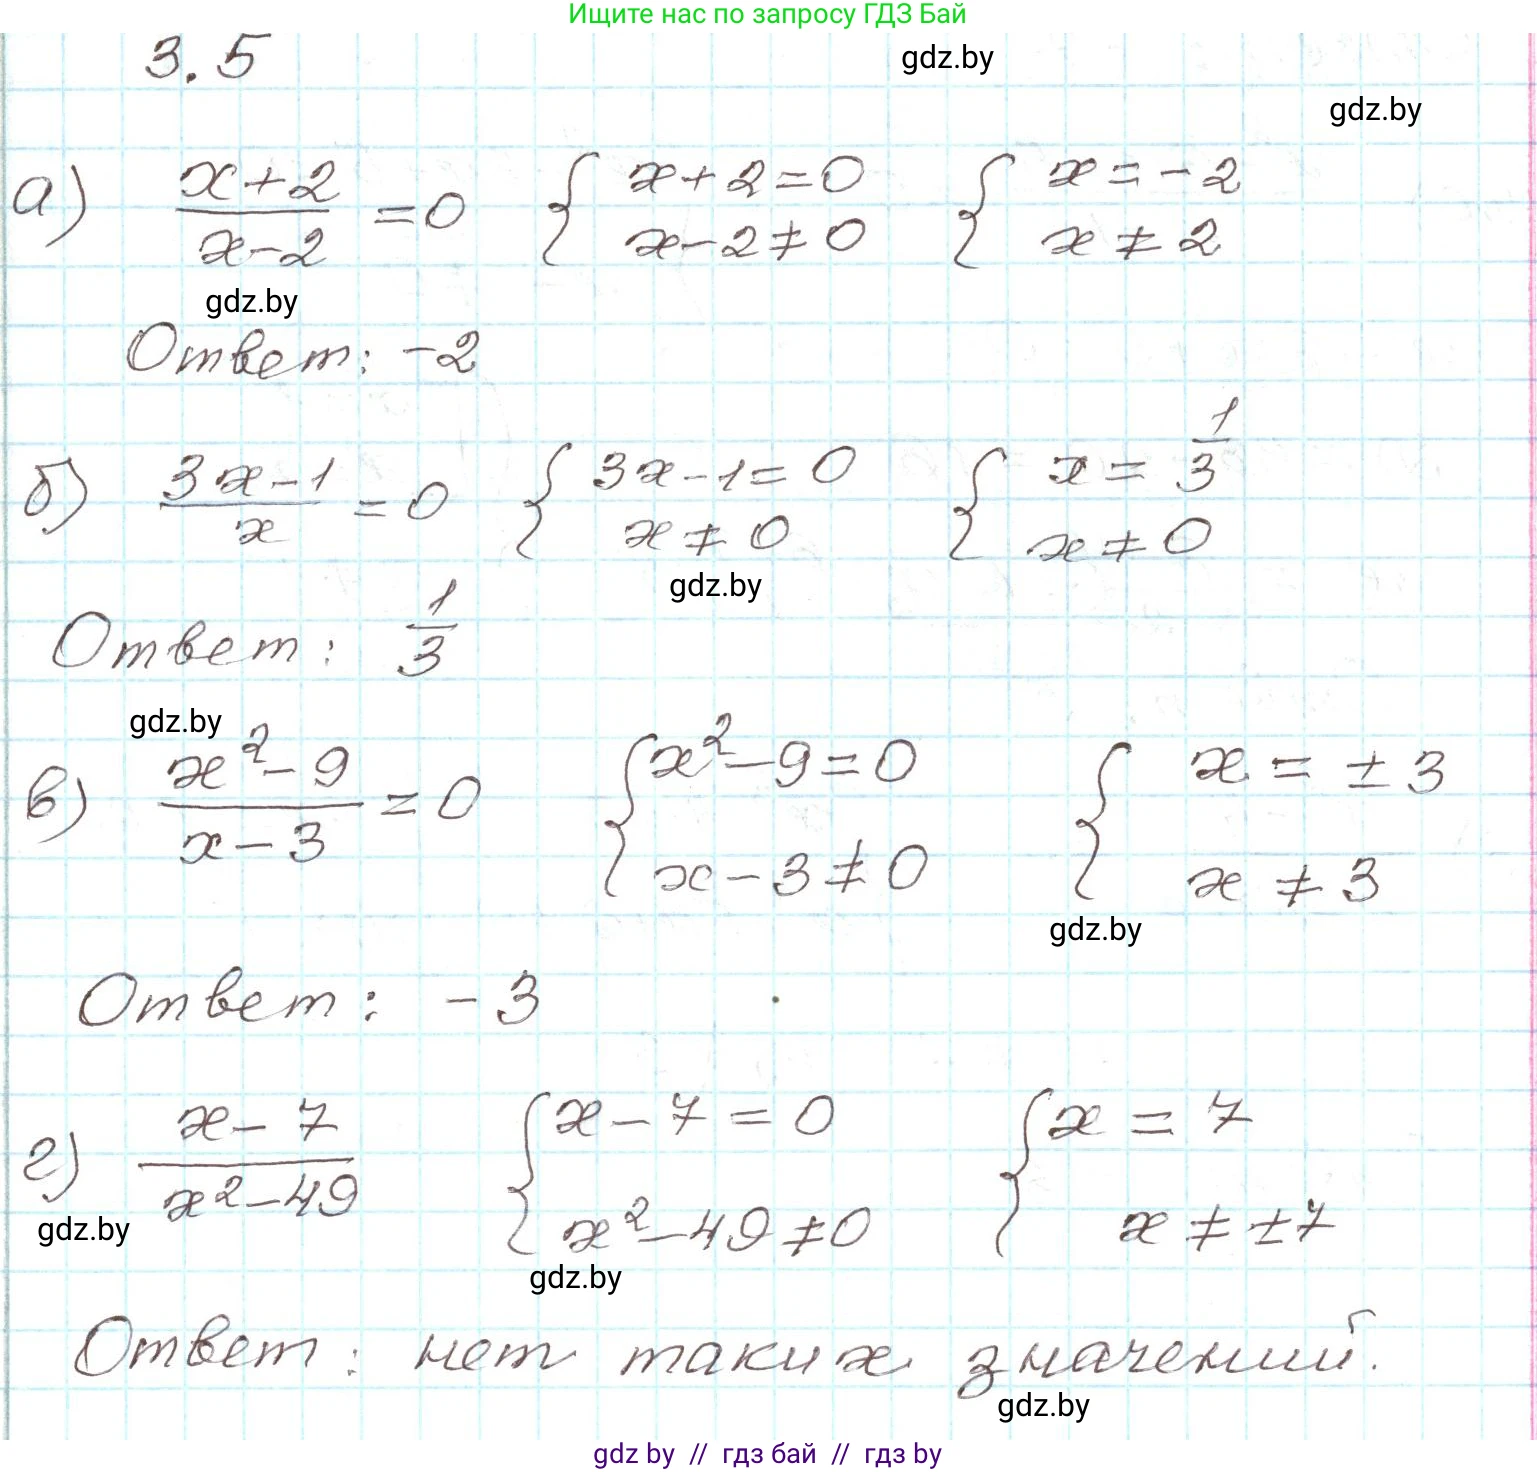 Ищите нас по запросу ГДЗ Бай
3.5
gdz.by
gdz.by
а) (x+2)/(x-2) = 0 { x+2=0 { x=-2
x-2≠0 x≠2
gdz.by
Ответ: -2
б) (3x-1)/x = 0 { 3x-1=0 { x=1/3
x≠0 x≠0
gdz.by
Ответ: 1/3
gdz.by
в) (x²-9)/(x-3) = 0 { x²-9=0 { x=±3
x-3≠0 x≠3
gdz.by
Ответ: -3
г) (x-7)/(x²-49) { x-7=0 { x=7
x²-49≠0 x≠±7
gdz.by
gdz.by
Ответ: нет таких значений.
gdz.by
gdz by // гдз бай // гдз by